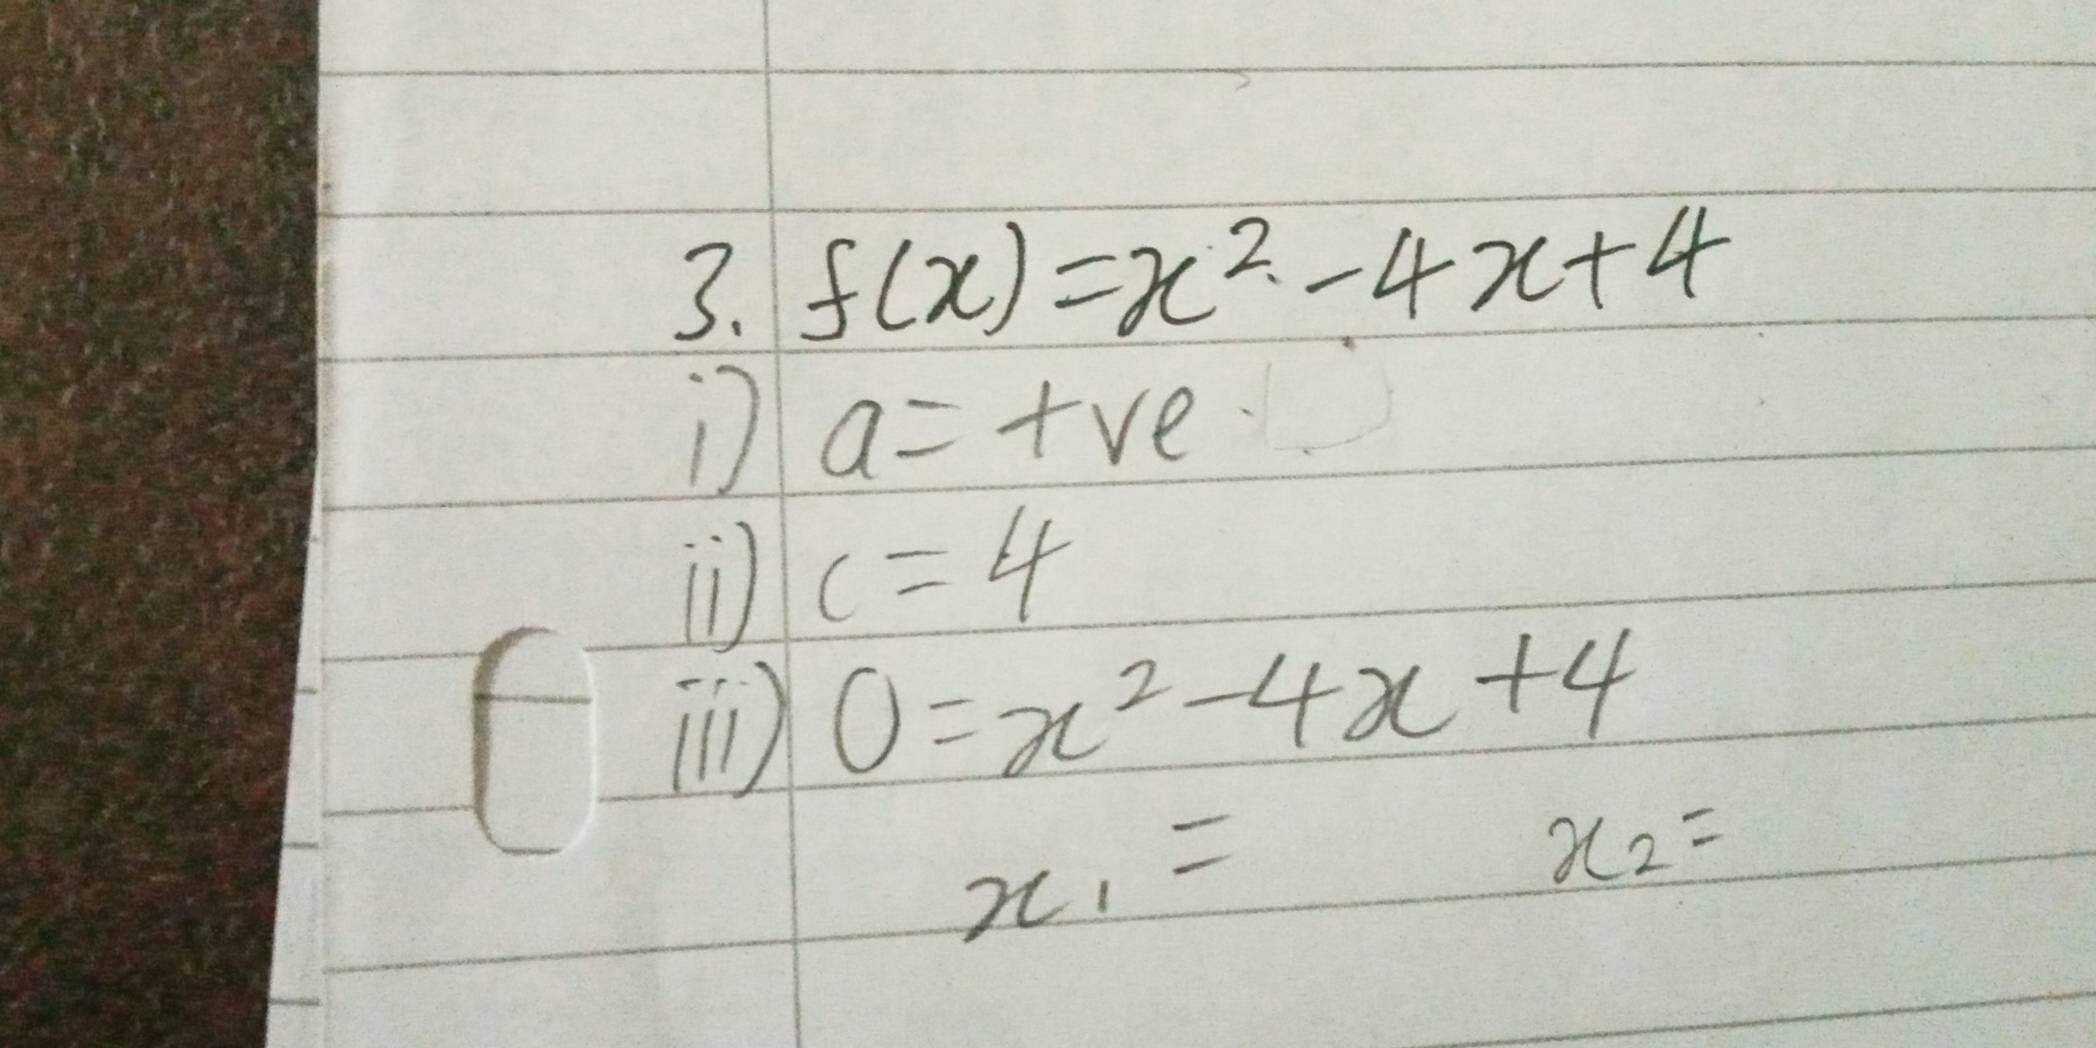 3. f(x) = x² - 4x + 4
i) a = +ve
ii) c = 4
iii) 0 = x² - 4x + 4
x₁ = x₂ =